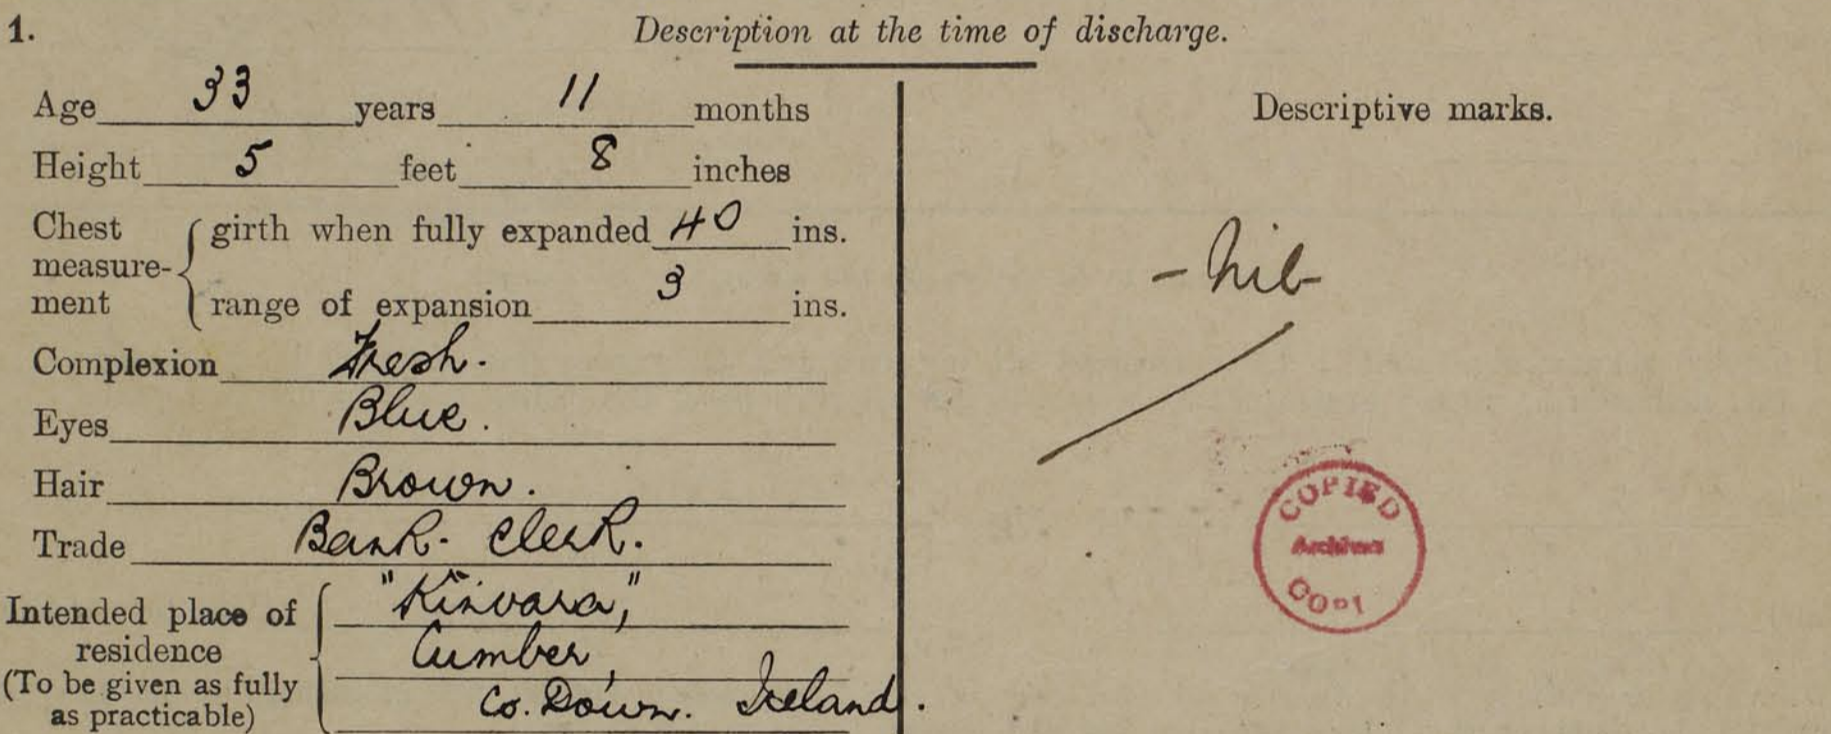 1. Description at the time of discharge.
Age 33 years 11 months
Height 5 feet 8 inches
Chest measure- ment
girth when fully expanded 40 ins.
range of expansion 3 ins.
Complexion Fresh.
Eyes Blue.
Hair Brown.
Trade Bank. Clerk.
Intended place of
residence
(To be given as fully
as practicable)
"Kinvara,"
Cumber,
Co. Down. Ireland.
Descriptive marks.
- Nil -
COPIED
Archives